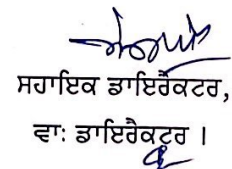 ਸਹਾਇਕ ਡਾਇਰੈਕਟਰ,
ਵਾ: ਡਾਇਰੈਕਟਰ ।